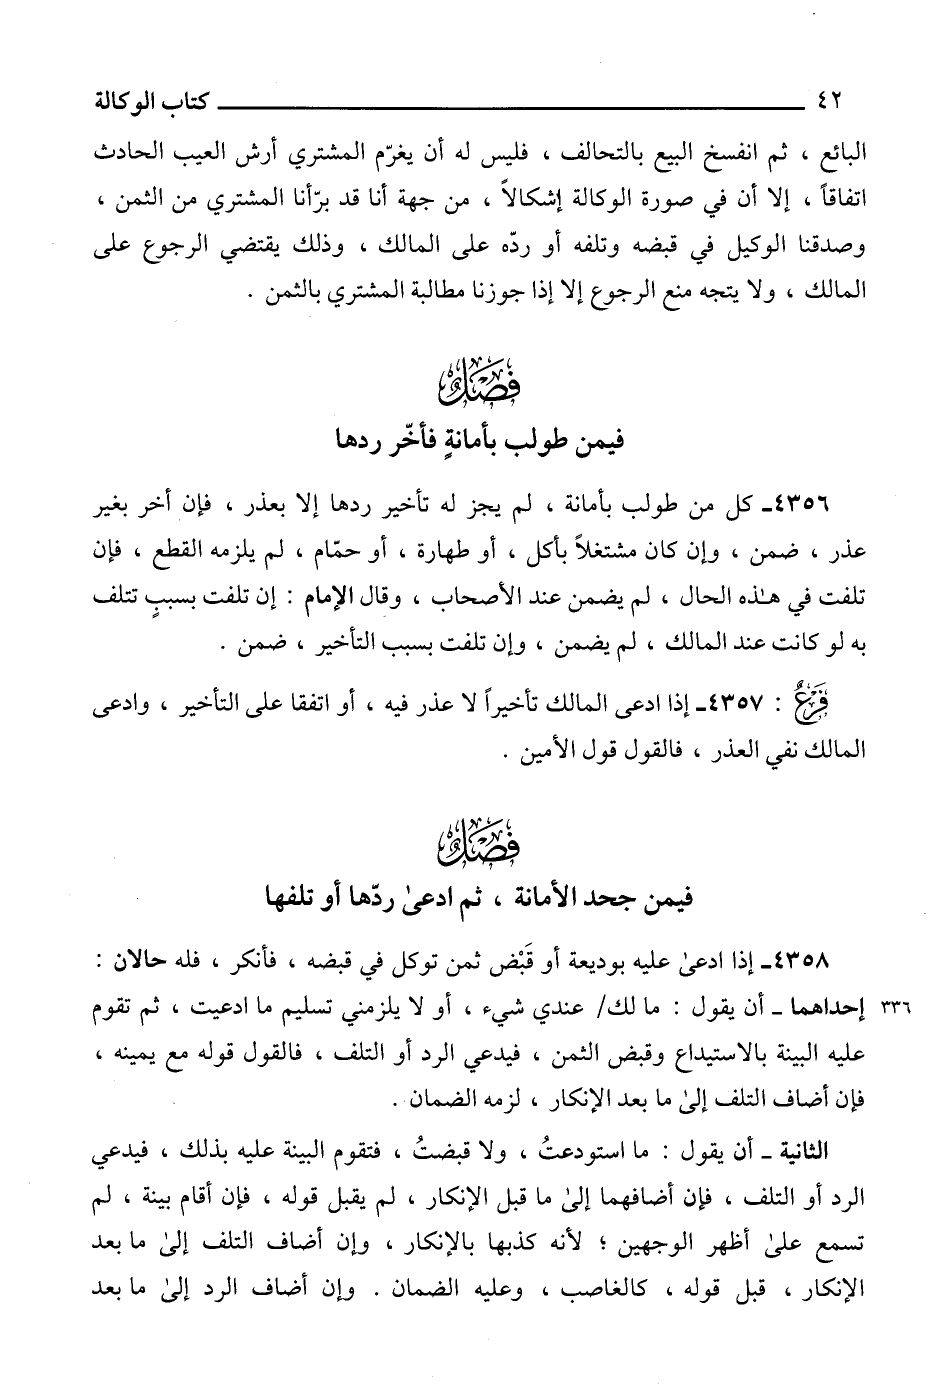 ٤٢ كتاب الوكالة
البائع ، ثم انفسخ البيع بالتحالف ، فليس له أن يغرّم المشتري أرش العيب الحادث
اتفاقاً ، إلا أن في صورة الوكالة إشكالاً ، من جهة أنا قد برّأنا المشتري من الثمن ،
وصدقنا الوكيل في قبضه وتلفه أو ردّه على المالك ، وذلك يقتضي الرجوع على
المالك ، ولا يتجه منع الرجوع إلا إذا جوزنا مطالبة المشتري بالثمن .
فصل
فيمن طولب بأمانةٍ فأخّر ردها
٤٣٥٦ـ كل من طولب بأمانة ، لم يجز له تأخير ردها إلا بعذر ، فإن أخر بغير
عذر ، ضمن ، وإن كان مشتغلاً بأكل ، أو طهارة ، أو حمّام ، لم يلزمه القطع ، فإن
تلفت في هـٰذه الحال ، لم يضمن عند الأصحاب ، وقال الإمام : إن تلفت بسببٍ تتلف
به لو كانت عند المالك ، لم يضمن ، وإن تلفت بسبب التأخير ، ضمن .
فَرْعٌ : ٤٣٥٧ـ إذا ادعى المالك تأخيراً لا عذر فيه ، أو اتفقا على التأخير ، وادعى
المالك نفي العذر ، فالقول قول الأمين .
فصل
فيمن جحد الأمانة ، ثم ادعىٰ ردّها أو تلفها
٤٣٥٨ـ إذا ادعىٰ عليه بوديعة أو قَبْض ثمن توكل في قبضه ، فأنكر ، فله حالان :
٣٣٦ إحداهما ـ أن يقول : ما لك/ عندي شيء ، أو لا يلزمني تسليم ما ادعيت ، ثم تقوم
عليه البينة بالاستيداع وقبض الثمن ، فيدعي الرد أو التلف ، فالقول قوله مع يمينه ،
فإن أضاف التلف إلىٰ ما بعد الإنكار ، لزمه الضمان .
الثانية ـ أن يقول : ما استودعتُ ، ولا قبضتُ ، فتقوم البينة عليه بذلك ، فيدعي
الرد أو التلف ، فإن أضافهما إلىٰ ما قبل الإنكار ، لم يقبل قوله ، فإن أقام بينة ، لم
تسمع علىٰ أظهر الوجهين ؛ لأنه كذبها بالإنكار ، وإن أضاف التلف إلىٰ ما بعد
الإنكار ، قبل قوله ، كالغاصب ، وعليه الضمان . وإن أضاف الرد إلىٰ ما بعد